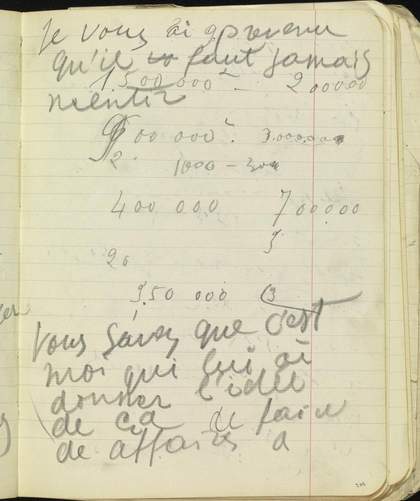 je vous ai qprevenu
qu'il faut jamais
1500 000² - 200000
mentir
900 000². 3.000.000
2. 1000 - 300
400 000 700000
5
20
950 000 (3
Vous Savez que c'est
moi qui lui ai
donner l'idée
de ça de faire
de affaires a